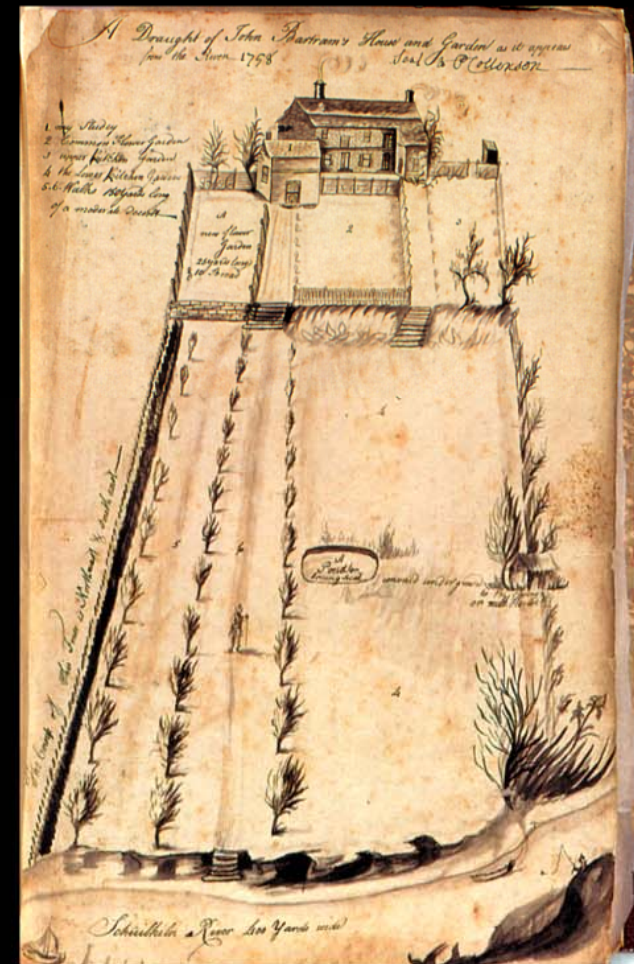 A Draught of John Bartram's House and Garden as it appears
from the River 1758
Sent to P Collenson
1 my Study
2 Common Flower Garden
3 upper Kitchen Garden
4 the Lower Kitchen Garden
5.6 Walks 150 yards long
of a moderate descent
1
A
new flower
Garden
25 yards long
& 10 broad
2
3
4
5
6
A
Pond
Spring head
convaid under ground
to the
or milk
4
of the Line is Northwest & southeast
Schuilkiln River 200 Yards wide